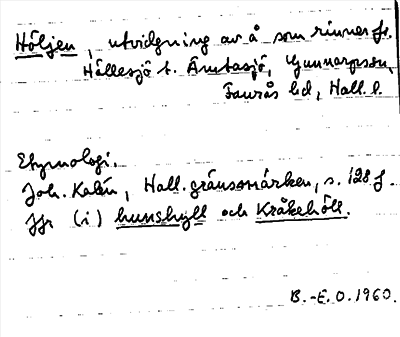 Höljen, utvidgning av å som rinner fr.
Hällesjö t. Ämtasjö, Gunnarpssn,
Faurås hd, Hall. l.
Etymologi.
Joh. Kalén, Hall. gränsmärken, s. 128 f.
Jfr (i) hunshyll och Kråkehöll.
B.-E. O. 1960.